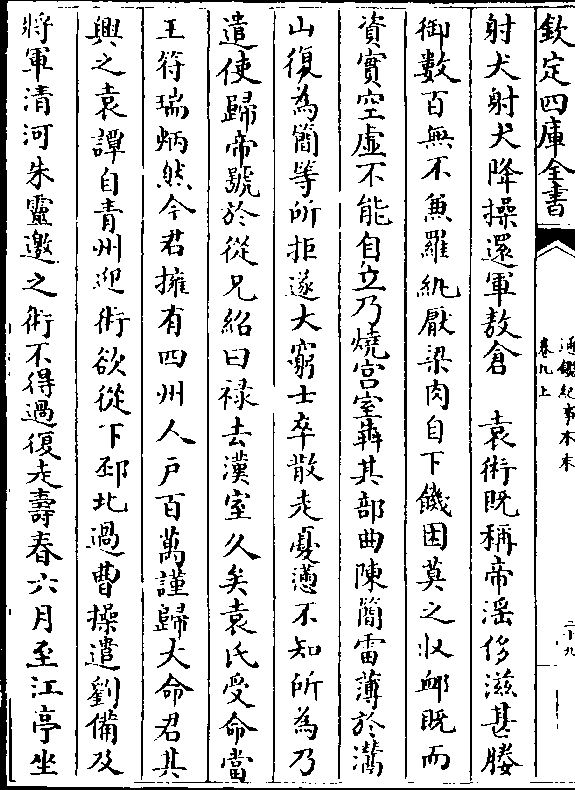 欽定四庫全書
通鑑紀事本末
卷九上
二十九
射犬射犬降操還軍敖倉　袁術既稱帝滛侈滋甚媵
御數百無不兼羅紈厭梁肉自下饑困莫之收䘏既而
資實空虛不能自立乃燒宫室犇其部曲陳簡雷薄於灊
山復為簡等所拒遂大窮士卒散走憂懣不知所為乃
遣使歸帝號於從兄紹曰禄去漢室久矣袁氏受命當
王符瑞炳然今君擁有四州人戶百萬謹歸大命君其
興之袁譚自青州迎術欲從下邳北過曹操遣劉備及
將軍清河朱靈邀之術不得過復走壽春六月至江亭坐